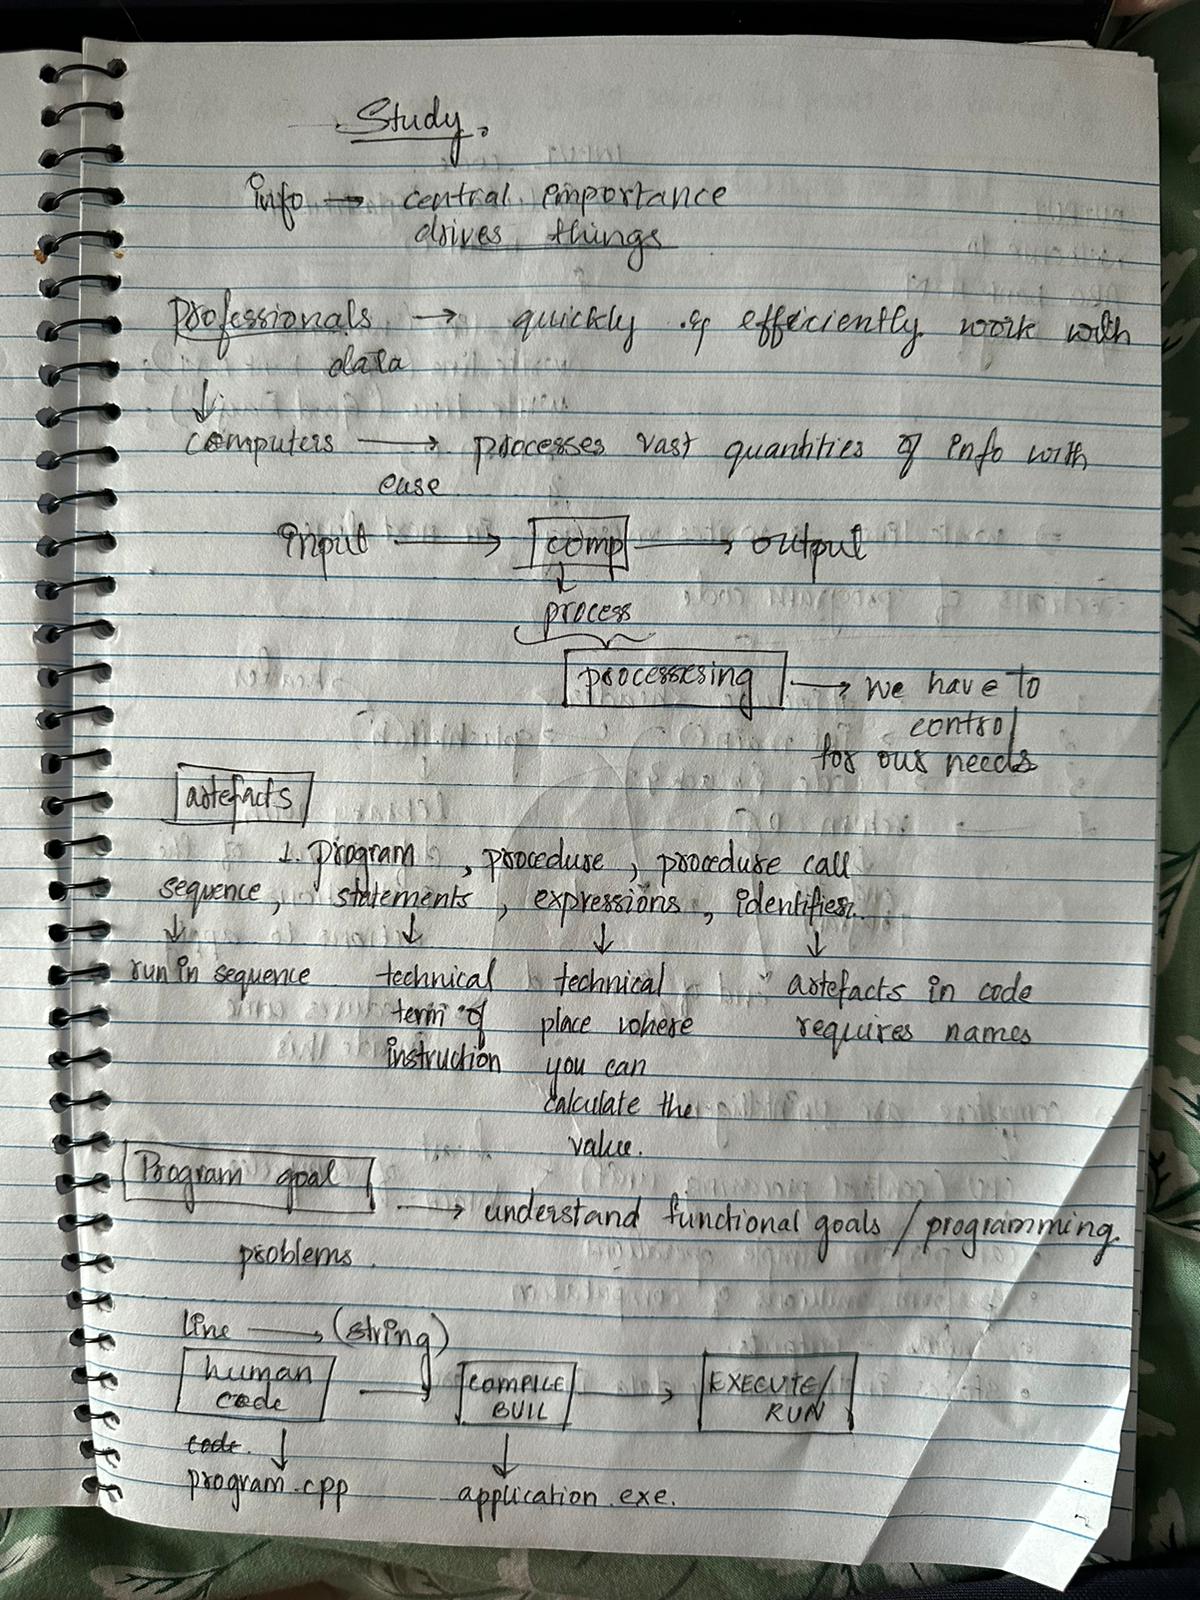 Study.
info → central importance
drives things
Professionals → quickly & efficiently work with
data
↓
computers → processes vast quantities of info with
ease
input → comp → output
↓
process
processesing → we have to
control
for our needs
artefacts
1. program, procedure, procedure call
sequence, statements, expressions, identifier.
↓ ↓ ↓ ↓
run in sequence technical technical artefacts in code
term of place where requires names
instruction you can
calculate the
value.
Program goal
→ understand functional goals / programming
problems.
line → (string)
human → COMPILE → EXECUTE/
code BUIL RUN
code. ↓ ↓
program.cpp application.exe.